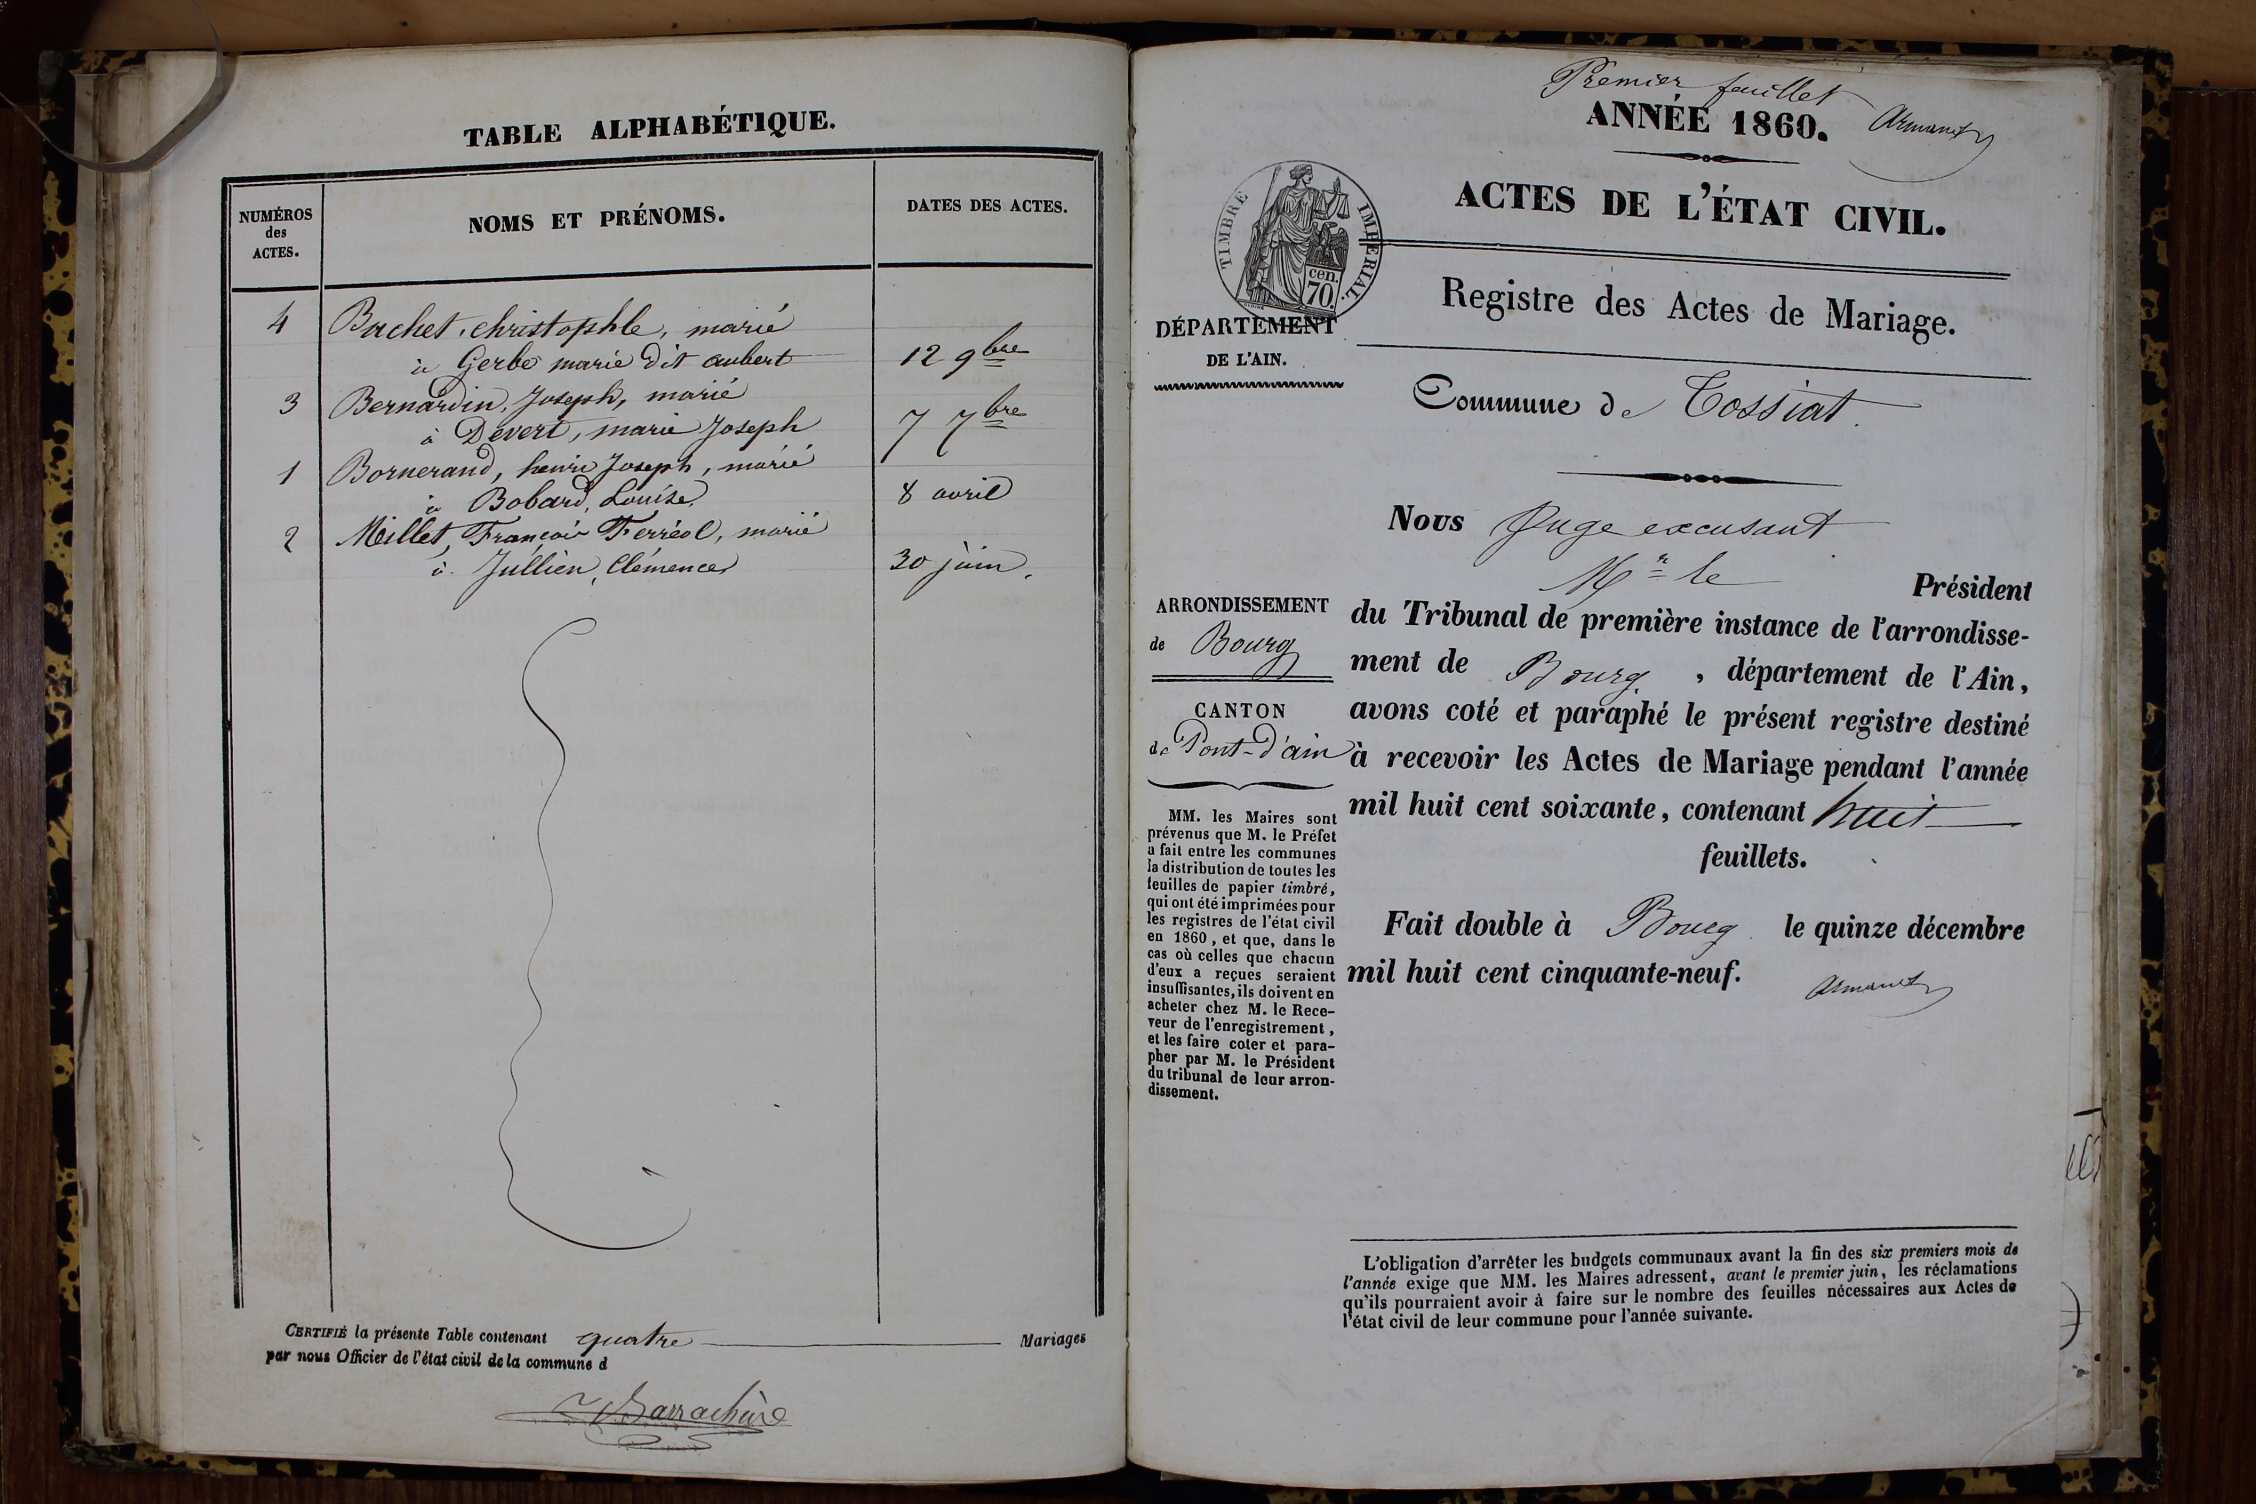 TABLE ALPHABÉTIQUE.
NUMÉROS
des
ACTES.
NOMS ET PRÉNOMS.
DATES DES ACTES.
4 Bachet, christophle, marié
à Gerbe marie dit aubert 12 9bre
3 Bernardin, Joseph, marié
à Devert, marie Joseph 7 7bre
1 Bornerand, henri Joseph, marié
à Bobard, Louise 8 avril
2 Millet, François Ferréol, marié
à Jullien, Clémence 30 juin.
CERTIFIÉ la présente Table contenant quatre Mariages
par nous Officier de l'état civil de la commune d
Premier feuillet
ANNÉE 1860.
Armanet
ACTES DE L'ÉTAT CIVIL.
TIMBRE IMPERIAL.
cen.
70.
Registre des Actes de Mariage.
DÉPARTEMENT
DE L'AIN.
Commune de Tossiat.
Nous Juge excusant
Mr le Président
du Tribunal de première instance de l'arrondisse-
ment de Bourg, département de l'Ain,
avons coté et paraphé le présent registre destiné
à recevoir les Actes de Mariage pendant l'année
mil huit cent soixante, contenant huit
feuillets.
Fait double à Bourg le quinze décembre
mil huit cent cinquante-neuf.
Armanet
ARRONDISSEMENT
de Bourg
CANTON
de Pont-d'ain
MM. les Maires sont
prévenus que M. le Préfet
a fait entre les communes
la distribution de toutes les
feuilles de papier timbré,
qui ont été imprimées pour
les registres de l'état civil
en 1860, et que, dans le
cas où celles que chacun
d'eux a reçues seraient
insuffisantes, ils doivent en
acheter chez M. le Rece-
veur de l'enregistrement,
et les faire coter et para-
pher par M. le Président
du tribunal de leur arron-
dissement.
L'obligation d'arrêter les budgets communaux avant la fin des six premiers mois de
l'année exige que MM. les Maires adressent, avant le premier juin, les réclamations
qu'ils pourraient avoir à faire sur le nombre des feuilles nécessaires aux Actes de
l'état civil de leur commune pour l'année suivante.